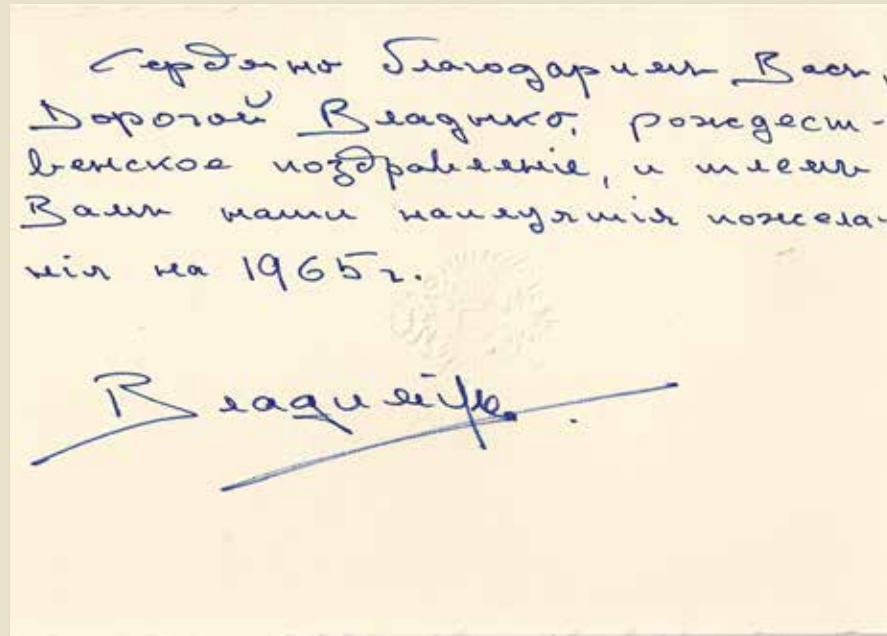 Сердечно благодаримъ Васъ,
Дорогой Владыко, рождест-
венское поздравленіе, и шлемъ
Вамъ наши наилучшія пожела-
нія на 1965 г.
Владиміръ.